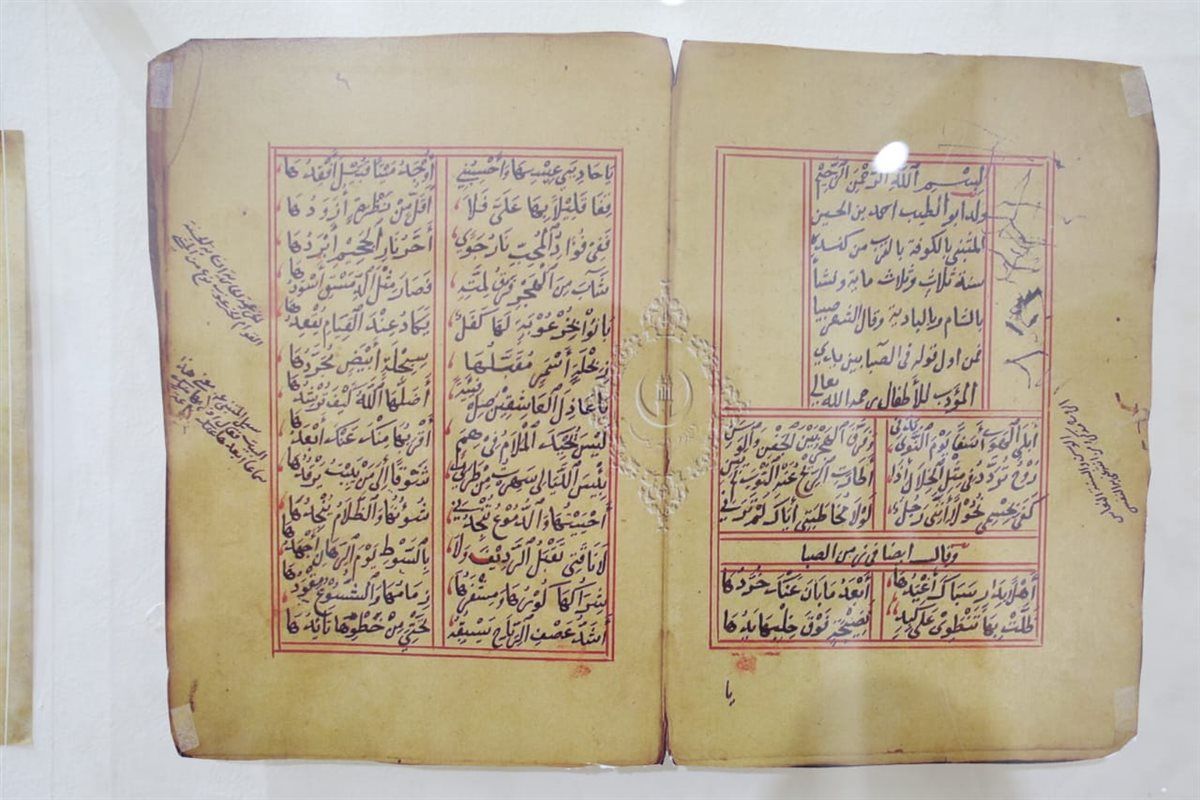 بسم الله الرحمن الرحيم
ولد ابو الطيب احمد بن الحسين
المتنبي بالكوفة بالقرب من كنده
سنة ثلاث وثلاث ماية ونشأ
بالشام وبالبادية وقال الشعر صبيا
فمن اول قوله في الصبا بين يدي
المؤدب للأطفال رحمه الله تعالى
أبلى الهوى أسفًا يوم النوى بدني وفرق الهجر بين الجفن والوسن
روح تردد في مثل الخلال اذا أطارت الريح عنه الثوب لم يبن
كفى بجسمي نحولا أنني رجل لولا مخاطبتي اياك لم ترني
وقال ايضا في زمن الصبا
أهلا بدار سباك أغيدها أبعد ما بان عنك خردها
ظلت بها تنطوي على كبد نضيجة فوق خلبها يدها
يا
يا حاديي عيسها وأحسبني أوجد ميتا قبيل أفقدها
قفا قليلا بها علي فلا أقل من نظرة أزودها
ففي فؤاد المحب نار جوى أحر نار الجحيم أبردها
شاب من الهجر فرق لمته فصار مثل الدمقس أسودها
بانوا بخرعوبة لها كفل يكاد عند القيام يقعدها
ربحلة أسمر مقبلها سبحلة أبيض مجردها
يا عاذل العاشقين دع فئة أضلها الله كيف ترشدها
ليس يحيك الملام في همم أقربها منك عنك أبعدها
بئس الليالي سهرت من طربي شوقا إلى من يبيت يرقدها
أحييتها والدموع تنجدني شؤونها والظلام ينجدها
لا ناقتي تقبل الرديف ولا بالسوط يوم الرهان أجهدها
شراكها كورها ومشفرها زمامها والشسوع مقودها
أشد عصف الرياح يسبقه تحتي من خطوها تأيدها